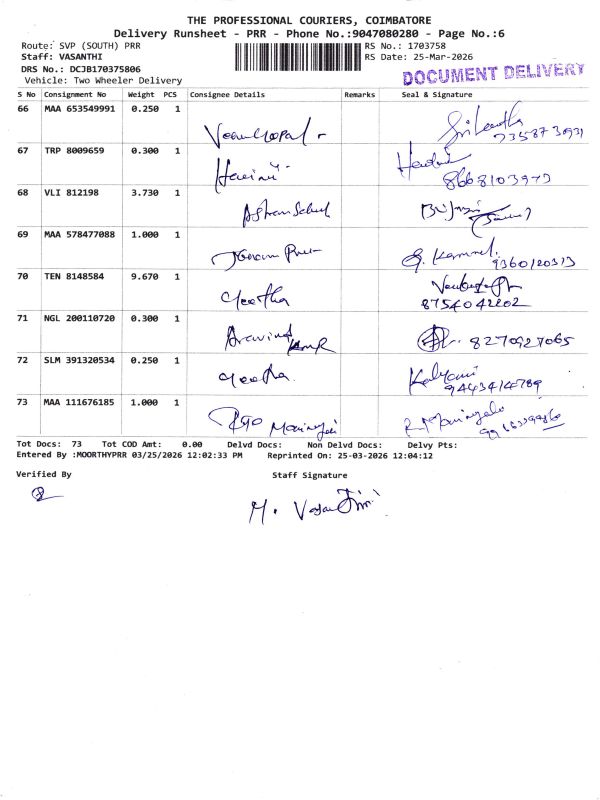 THE PROFESSIONAL COURIERS, COIMBATORE
Delivery Runsheet - PRR - Phone No.:9047080280 - Page No.:6
Route: SVP (SOUTH) PRR
RS No.: 1703758
Staff: VASANTHI
RS Date: 25-Mar-2026
DRS No.: DCJB170375806
Vehicle: Two Wheeler Delivery
DOCUMENT DELIVERY
S No Consignment No Weight PCS Consignee Details Remarks Seal & Signature
66 MAA 653549991 0.250 1
67 TRP 8009659 0.300 1 Harini
8668103973
68 VLI 812198 3.730 1
69 MAA 578477088 1.000 1
9360120313
70 TEN 8148584 9.670 1 Geetha
8754042202
71 NGL 200110720 0.300 1 Aravind 8270927065
72 SLM 391320534 0.250 1 Geetha. Kalyani
9443414789
73 MAA 111676185 1.000 1
Tot Docs: 73 Tot COD Amt: 0.00 Delvd Docs: Non Delvd Docs: Delvy Pts:
Entered By :MOORTHYPRR 03/25/2026 12:02:33 PM Reprinted On: 25-03-2026 12:04:12
Verified By Staff Signature
M. Vasanthi